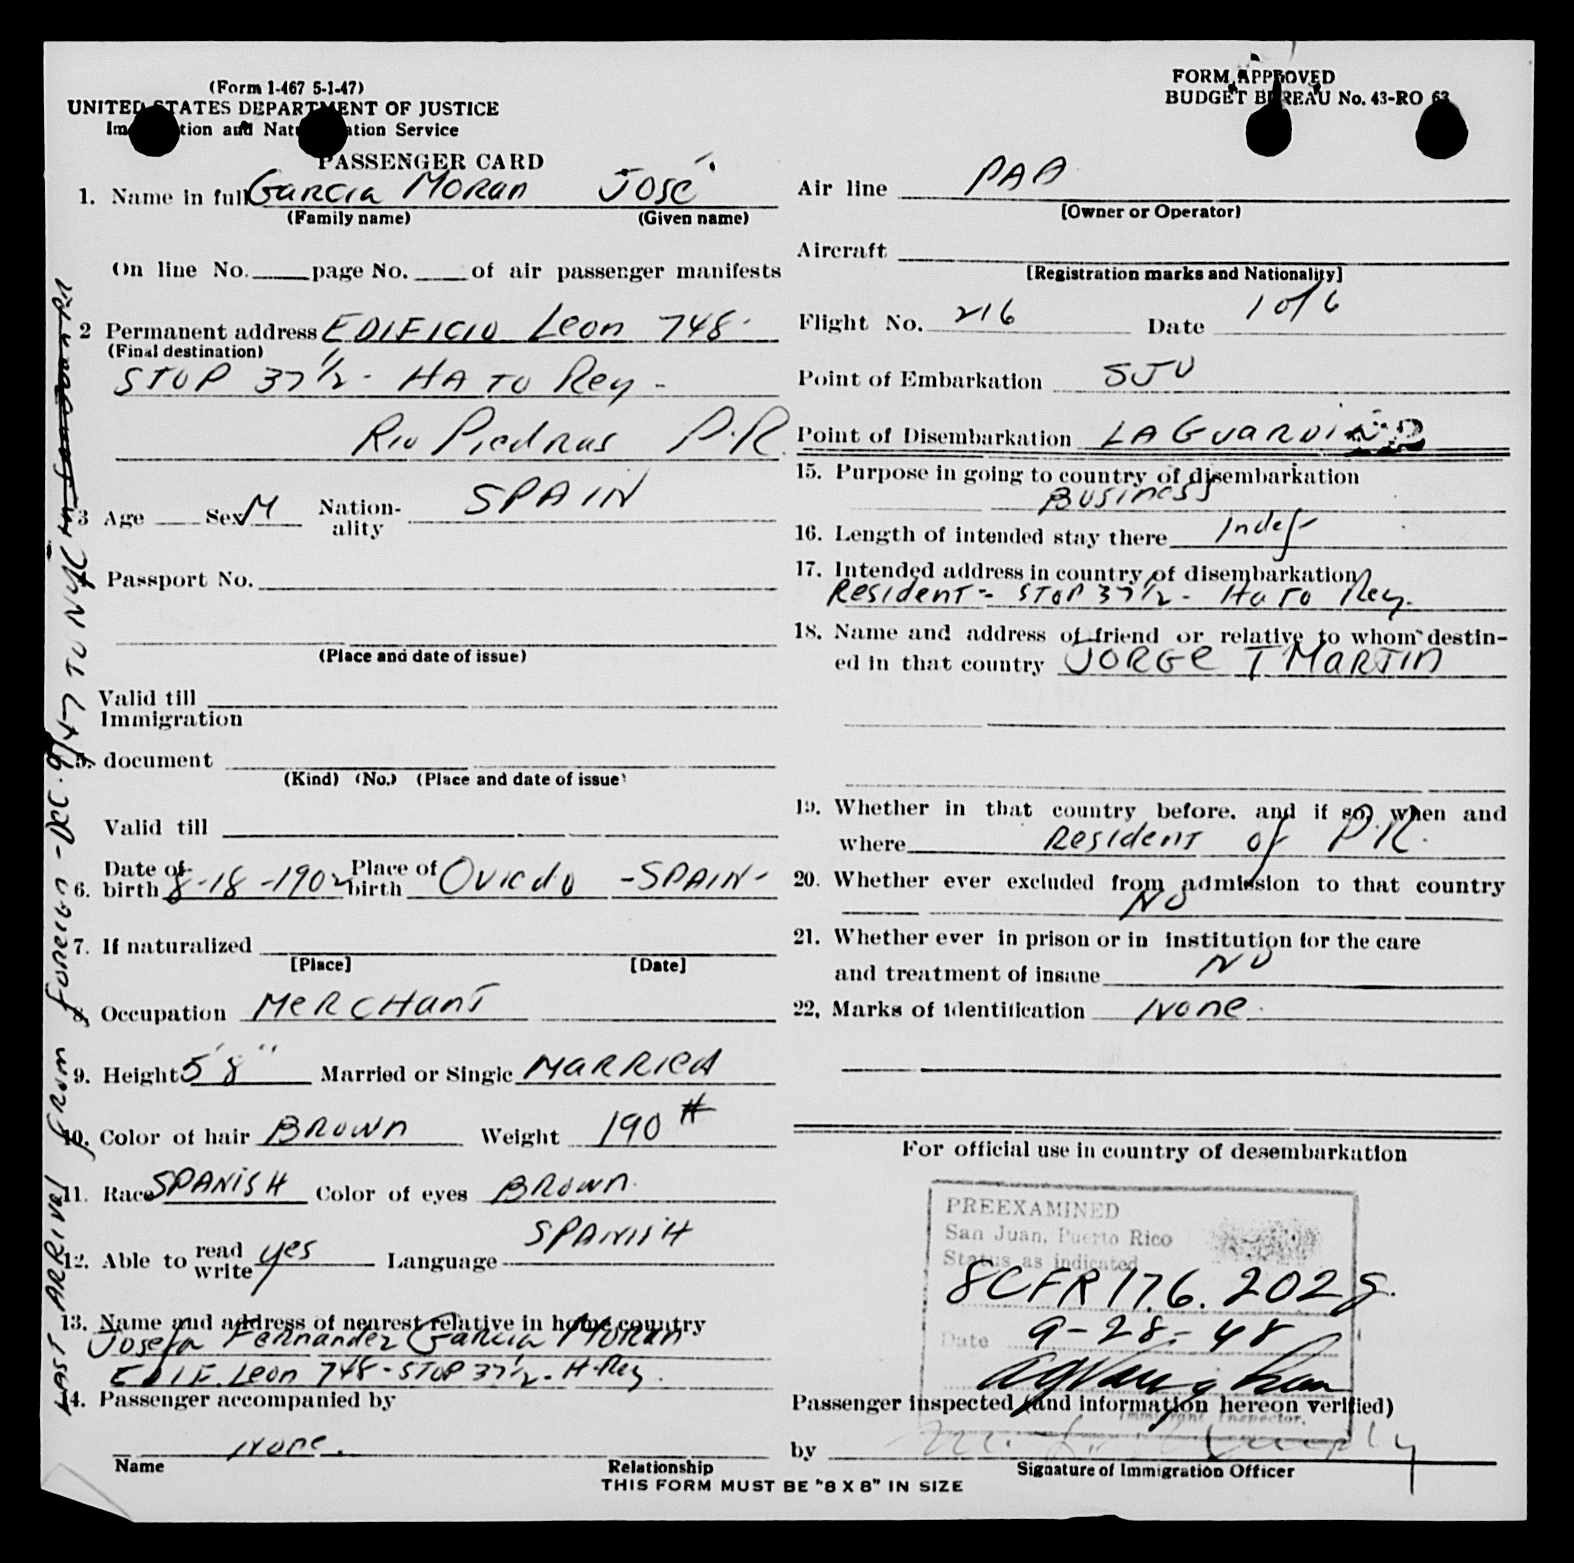 (Form 1-467 5-1-47)
UNITED STATES DEPARTMENT OF JUSTICE
Immigration and Naturalization Service
PASSENGER CARD
1. Name in full Garcia Moran José
(Family name) (Given name)
On line No. page No. of air passenger manifests
2 Permanent address EDIFICIO Leon 748-
(Final destination)
STOP 37 1/2 - HATO Rey -
Rio Piedras P.R.
3 Age Sex M Nationality SPAIN
Passport No.
(Place and date of issue)
Valid till
Immigration
5. document
(Kind) (No.) (Place and date of issue)
Valid till
6. Date of birth 8-18-1902 Place of birth Oviedo -SPAIN-
7. If naturalized
[Place] [Date]
8. Occupation MERCHANT
9. Height 5' 8'' Married or Single MARRIED
10. Color of hair BROWN Weight 190 #
11. Race SPANISH Color of eyes BROWN.
12. Able to read write yes Language SPANISH
13. Name and address of nearest relative in home country
Josefa Fernandez Garcia Moran
EDIF. Leon 748 - STOP 37 1/2 - H. Rey.
14. Passenger accompanied by
None.
Name Relationship
LAST ARRIVAL from foreign - Dec. 9/47 TO NYC
FORM APPROVED
BUDGET BUREAU No. 43-RO 63
Air line PAA
[Owner or Operator]
Aircraft
[Registration marks and Nationality]
Flight No. 216 Date 10/6
Point of Embarkation SJU
Point of Disembarkation LAGUARDIA
15. Purpose in going to country of disembarkation
Business
16. Length of intended stay there Indef
17. Intended address in country of disembarkation
Resident - STOP 37 1/2 - Hato Rey.
18. Name and address of friend or relative to whom destined in that country JORGE T MARTIN
19. Whether in that country before, and if so, when and
where Resident of P.R.
20. Whether ever excluded from admission to that country
NO
21. Whether ever in prison or in institution for the care
and treatment of insane NO
22. Marks of identification None.
For official use in country of desembarkation
PREEXAMINED
San Juan, Puerto Rico
Status as indicated
8CFR176.202g.
Date 9-28-48
Immigrant Inspector.
Passenger inspected (and information hereon verified)
by
Signature of Immigration Officer
THIS FORM MUST BE "8 X 8" IN SIZE